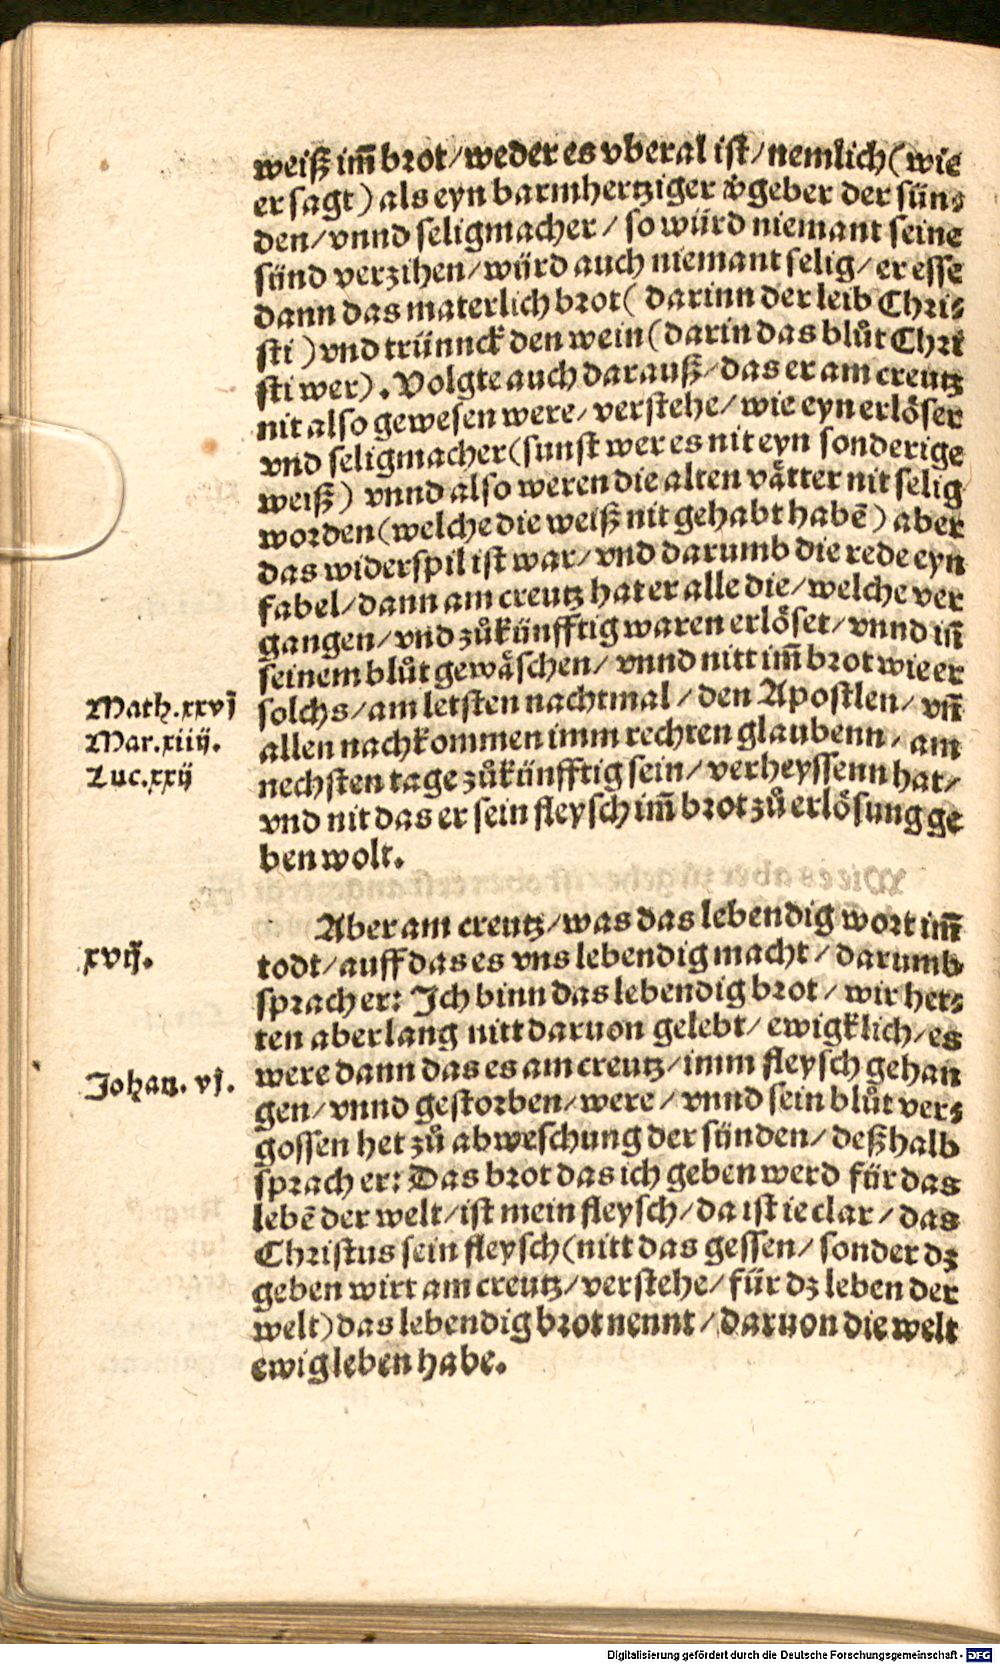 weiß im̃ brot/weder es vberal ist/nemlich(wie
er sagt) als eyn barmhertziger v̈geber der sün⸗
den/vnnd seligmacher/ so würd niemant seine
sünd verzihen/würd auch niemant selig/er esse
dann das materlich brot( darinn der leib Chri⸗
sti) vnd trünnck den wein(darin das blůt Chri
sti wer). Volgte auch darauß/das er am creutz
nit also gewesen were/verstehe/wie eyn erlöser
vnd seligmacher(sunst wer es nit eyn sonderige
weiß) vnnd also weren die alten vätter nit selig
worden(welche die weiß nit gehabt habẽ) aber
das widerspil ist war/vnd darumb die rede eyn
fabel/dann am creutz hat er alle die/welche ver
gangen/vnd zůkünfftig waren erlöset/vnnd iñ
seinem blůt gewäschen/vnnd nitt im̃ brot wie er
Math.xxvj
solchs/am letsten nachtmal/den Apostlen/vñ
Mar.xiiij.
allen nachkommen imm rechten glaubenn/am
Luc.xxij
nechsten tage zůkünfftig sein/verheyssenn hat/
vnd nit das er sein fleysch im̃ brot zů erlösung ge
ben wolt.
Aber am creutz/was das lebendig wort im̃
xvij.
todt/auff das es vns lebendig macht/darumb
sprach er: Ich binn das lebendig brot/wir het⸗
ten aber lang nitt daruon gelebt/ewigklich/es
Johan. vj.
were dann das es am creutz/imm fleysch gehan
gen/vnnd gestorben/were/vnnd sein blůt ver⸗
gossen het zů abweschung der sünden/deßhalb
sprach er: Das brot das ich geben werd für das
lebẽ der welt/ist mein fleysch/da ist ie clar/das
Christus sein fleysch(nitt das gessen/sonder dz
geben wirt am creutz/verstehe/für dz leben der
welt)das lebendig brot nennt/daruon die welt
ewig leben habe.
Digitalisierung gefördert durch die Deutsche Forschungsgemeinschaft - DFG